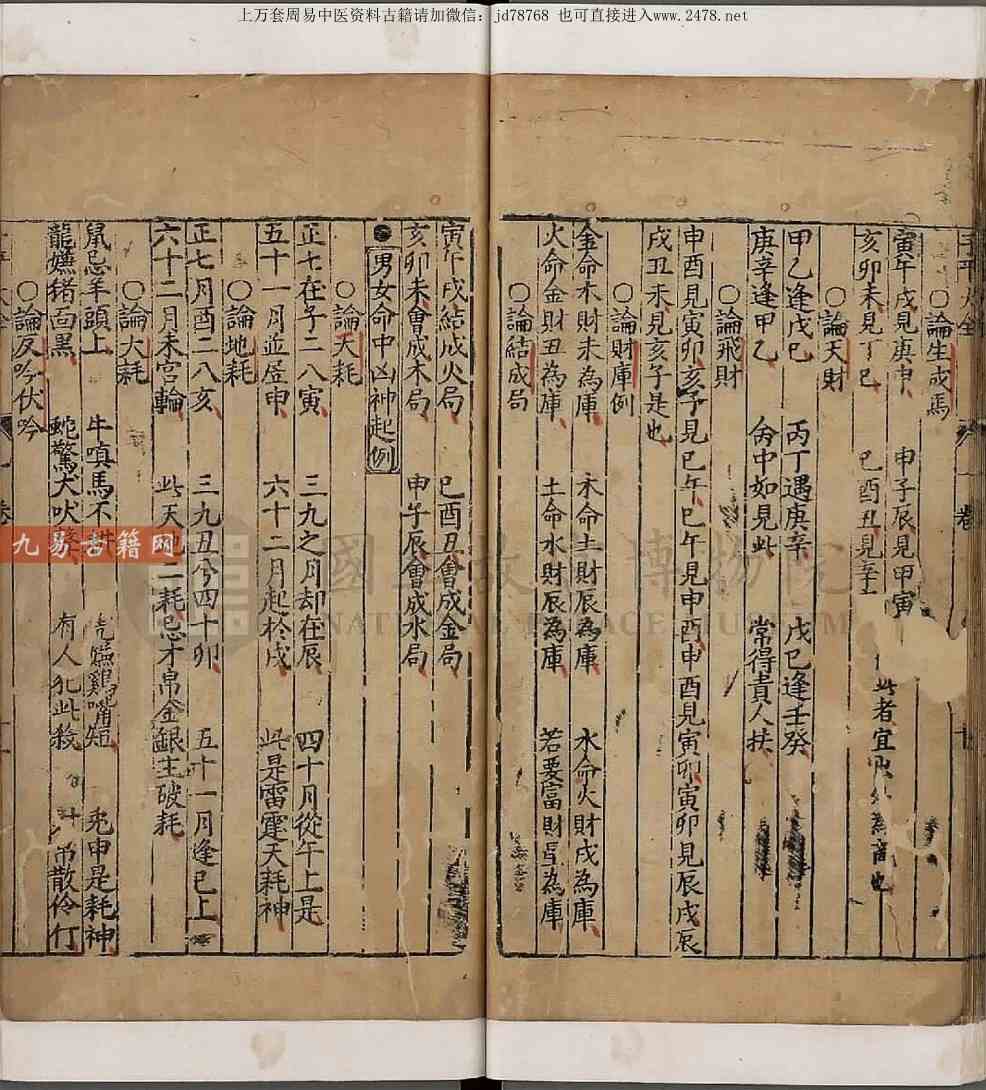 上万套周易中医资料古籍请加微信：jd78768 也可直接进入www.2478.net
〇論生成馬
寅午戌見庚申 申子辰見甲寅
亥卯未見丁巳 巳酉丑見辛 此者宜 外為商也
〇論天財
甲乙逢戊巳 丙丁遇庚辛 戊巳逢壬癸
庚辛逢甲乙 命中如見此 常得貴人扶
〇論飛財
申酉見寅卯亥子見巳午巳午見申酉申酉見寅卯寅卯見辰戌辰
戌丑未見亥子是也
〇論財庫例
金命木財未為庫 木命土財辰為庫 水命火財戌為庫
火命金財丑為庫 土命水財辰為庫 若要富財星為庫
〇論結成局
寅午戌結成火局 巳酉丑會成金局
亥卯未會成木局 申子辰會成水局
男女命中凶神起例
〇論天耗
正七在子二八寅 三九之月却在辰 四十月從午上是
五十一月並居申 六十二月起於戌 此是雷霆天耗神
〇論地耗
正七月酉二八亥 三九丑兮四十卯 五十一月逢巳上
六十二月未宮輪 此天地二耗忌才帛金銀主破耗
〇論大耗
鼠忌羊頭上 牛嗔馬不 虎 雞嘴短 兎申是耗神
龍嫌猪面黑 蛇驚犬吠 有人犯此殺 散伶仃
〇論反吟伏吟
九易古籍网
國 故 博物院
NATIONAL PALACE MUSEUM